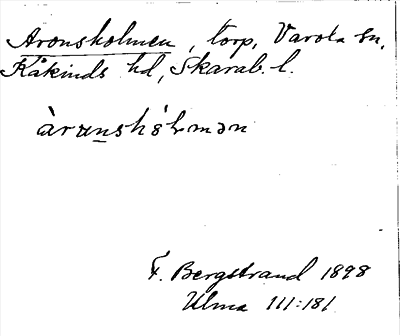 Aronsholmen, torp, Varola sn,
Kåkinds hd, Skarab. l.
àrɯnshòlmən
F. Bergstrand 1898
Ulma 111:181